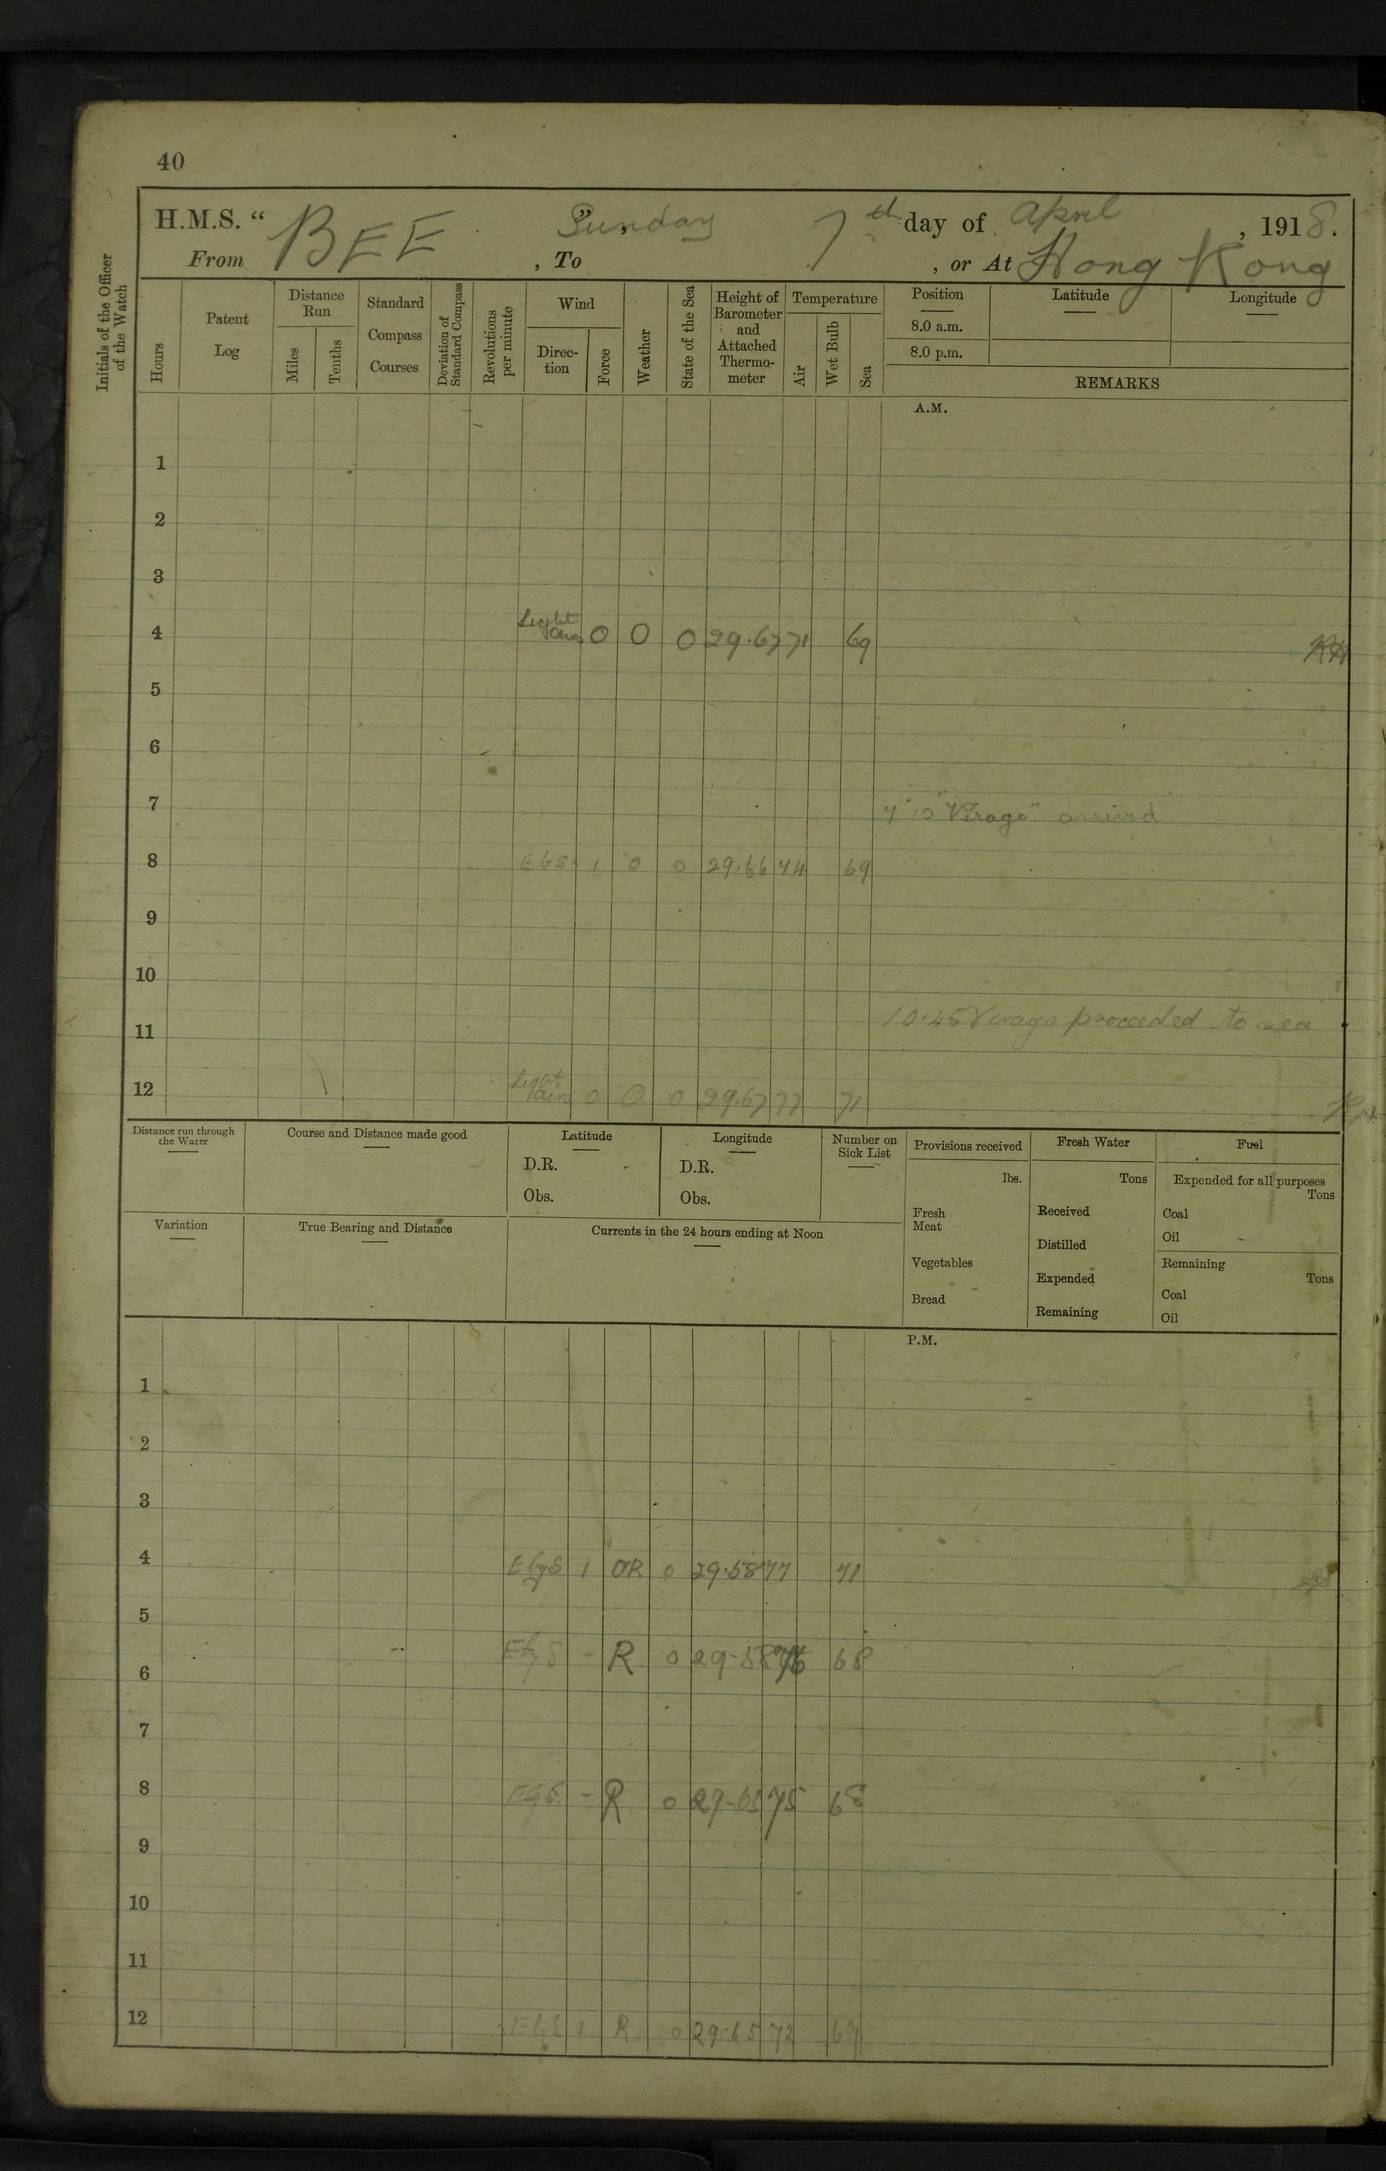 40
H.M.S. “ BEE ” Sunday 7th day of April , 1918.
From , To , or At Hong Kong
Initials of the Officer of the Watch
Hours
Patent Log
Distance Run
Miles
Tenths
Standard Compass Courses
Deviation of Standard Compass
Revolutions per minute
Wind
Direc-tion
Force
Weather
State of the Sea
Height of Barometer and Attached Thermo-meter
Temperature
Air
Wet Bulb
Sea
Position
8.0 a.m.
8.0 p.m.
Latitude
Longitude
REMARKS
A.M.
1
2
3
4 Light airs 0 0 0 29.67 71 69
5
6
7 "Virago" arrived
8 EbS 1 0 0 29.66 74 69
9
10
11 10.45 Virago proceeded to sea
12 Light airs 0 0 0 29.67 77 71
Distance run through the Water
Course and Distance made good
Latitude
D.R.
Obs.
Longitude
D.R.
Obs.
Number on Sick List
Provisions received
lbs.
Fresh Meat
Vegetables
Bread
Fresh Water
Tons
Received
Distilled
Expended
Remaining
Fuel
Expended for all purposes
Tons
Coal
Oil
Remaining
Tons
Coal
Oil
Variation
True Bearing and Distance
Currents in the 24 hours ending at Noon
P.M.
1
2
3
4 EbyS 1 OR 0 29.58 77 71
5
6 EbyS - R 0 29.58 76 68
7
8 EbyS - R 0 75 68
9
10
11
12 EbyS 1 R 0 29.65 72